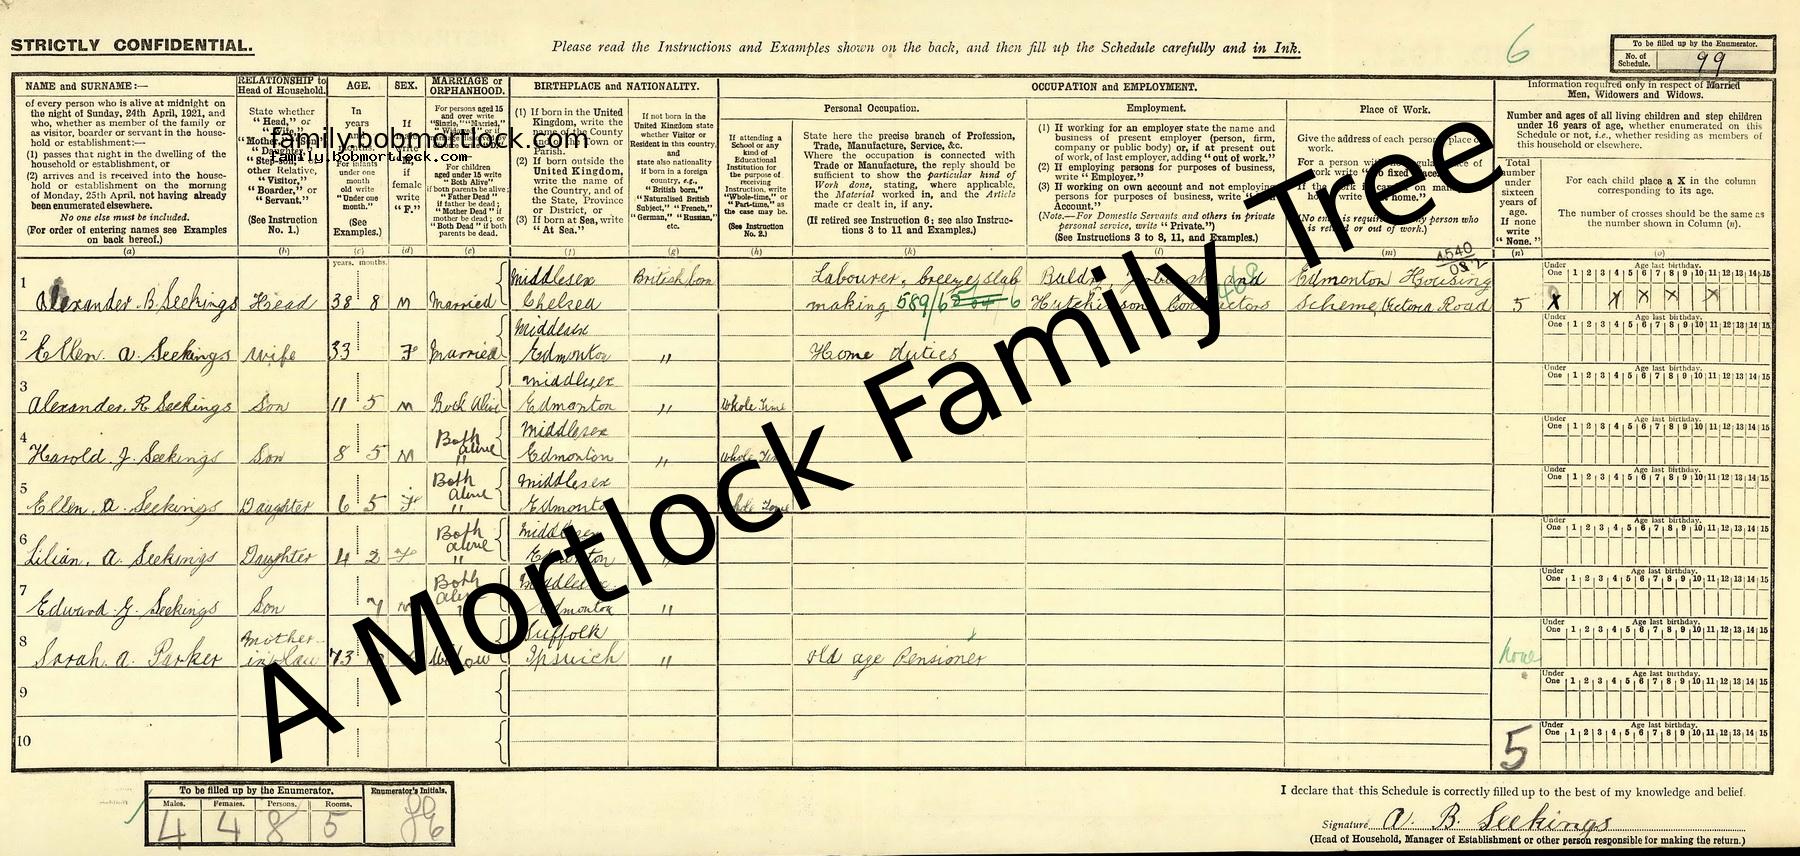 STRICTLY CONFIDENTIAL.
Please read the Instructions and Examples shown on the back, and then fill up the Schedule carefully and in Ink.
6
To be filled up by the Enumerator.
No. of Schedule. 99
NAME and SURNAME:—
of every person who is alive at midnight on
the night of Sunday, 24th April, 1921, and
who, whether as member of the family or
as visitor, boarder or servant in the house-
hold or establishment:—
(1) passes that night in the dwelling of the
household or establishment, or
(2) arrives and is received into the house-
hold or establishment on the morning
of Monday, 25th April, not having already
been enumerated elsewhere.
No one else must be included.
(For order of entering names see Examples
on back hereof.)
(a)
RELATIONSHIP to
Head of Household.
State whether
"Head," or
"Visitor,"
"Boarder," or
"Servant."
(See Instruction
No. 1.)
(b)
AGE.
In
years
(See
Examples.)
(c)
SEX.
If
female
write
"F."
(d)
MARRIAGE or
ORPHANHOOD.
For persons aged 15
and over write
For children
aged under 15 write
"Both Alive"
if both parents be alive;
"Father Dead"
if father be dead;
"Mother Dead" if
mother be dead;
"Both Dead" if both
parents be dead.
(e)
BIRTHPLACE and NATIONALITY.
(1) If born in the United
Kingdom, write the
name of the County
and of the Town or
Parish.
(2) If born outside the
United Kingdom,
write the name of
the Country, and of
the State, Province
or District, or
(3) If born at Sea, write
"At Sea."
(f)
If not born in the
United Kingdom state
whether Visitor or
Resident in this country,
and
state also nationality
if born in a foreign
country, e.g.,
"British born,"
"Naturalised British
Subject," "French,"
"German," "Russian,"
etc.
(g)
If attending a
School or any
kind of
Educational
Institution for
the purpose of
receiving
Instruction, write
"Whole-time," or
"Part-time," as
the case may be.
(See Instruction
No. 2.)
(h)
OCCUPATION and EMPLOYMENT.
Personal Occupation.
State here the precise branch of Profession,
Trade, Manufacture, Service, &c.
Where the occupation is connected with
Trade or Manufacture, the reply should be
sufficient to show the particular kind of
Work done, stating, where applicable,
the Material worked in, and the Article
made or dealt in, if any.
(If retired see Instruction 6; see also Instruc-
tions 3 to 11 and Examples.)
(k)
Employment.
(1) If working for an employer state the name and
business of present employer (person, firm,
company or public body) or, if at present out
of work, of last employer, adding "out of work."
(2) If employing persons for purposes of business,
write "Employer."
(3) If working on own account and not employing
persons for purposes of business, write "Own
Account."
(Note.—For Domestic Servants and others in private
personal service, write "Private.")
(See Instructions 3 to 8, 11, and Examples.)
(l)
Place of Work.
Give the address of each person's place of
work.
For a person with no regular place of
work write "No fixed place."
If the work is carried on mainly at
home, write "At home."
(No entry is required for any person who
is retired or out of work.)
(m)
Information required only in respect of Married
Men, Widowers and Widows.
Number and ages of all living children and step children
under 16 years of age, whether enumerated on this
Schedule or not, i.e., whether residing as members of
this household or elsewhere.
Total
number
under
sixteen
years of
age.
If none
write
"None."
(n)
For each child place a X in the column
corresponding to its age.
The number of crosses should be the same as
the number shown in Column (n).
(o)
family.bobmortlock.com
family.bobmortlock.com
A Mortlock Family Tree
years. months.
1 Alexander. B. Seekings Head 38 8 M Married Middlesex Chelsea British born Labourer, breeze slab making 589/6 Edmonton Housing Scheme, Victoria Road 5
2 Ellen. A. Seekings Wife 33 F Married Middlesex Edmonton " Home duties
3 Alexander. R. Seekings Son 11 5 M Both Alive Middlesex Edmonton " Whole Time
4 Harold. J. Seekings Son 8 5 M Both alive " Middlesex Edmonton " Whole Time
5 Ellen. A. Seekings Daughter 6 5 F Both alive " Middlesex Edmonton
6 Lilian. A. Seekings Daughter 4 2 F Both alive " Middlesex Edmonton "
7 Edward. G. Seekings Son 7 M Both alive Middlesex Edmonton "
8 Sarah. A. Parker Mother-in-law 73 Widow Suffolk Ipswich " Old age Pensioner None
9
10
5
Under One Age last birthday. 1 2 3 4 5 6 7 8 9 10 11 12 13 14 15
To be filled up by the Enumerator.
Males. Females. Persons. Rooms.
4 4 8 5
Enumerator's Initials.
I declare that this Schedule is correctly filled up to the best of my knowledge and belief.
Signature A. B. Seekings
(Head of Household, Manager of Establishment or other person responsible for making the return.)